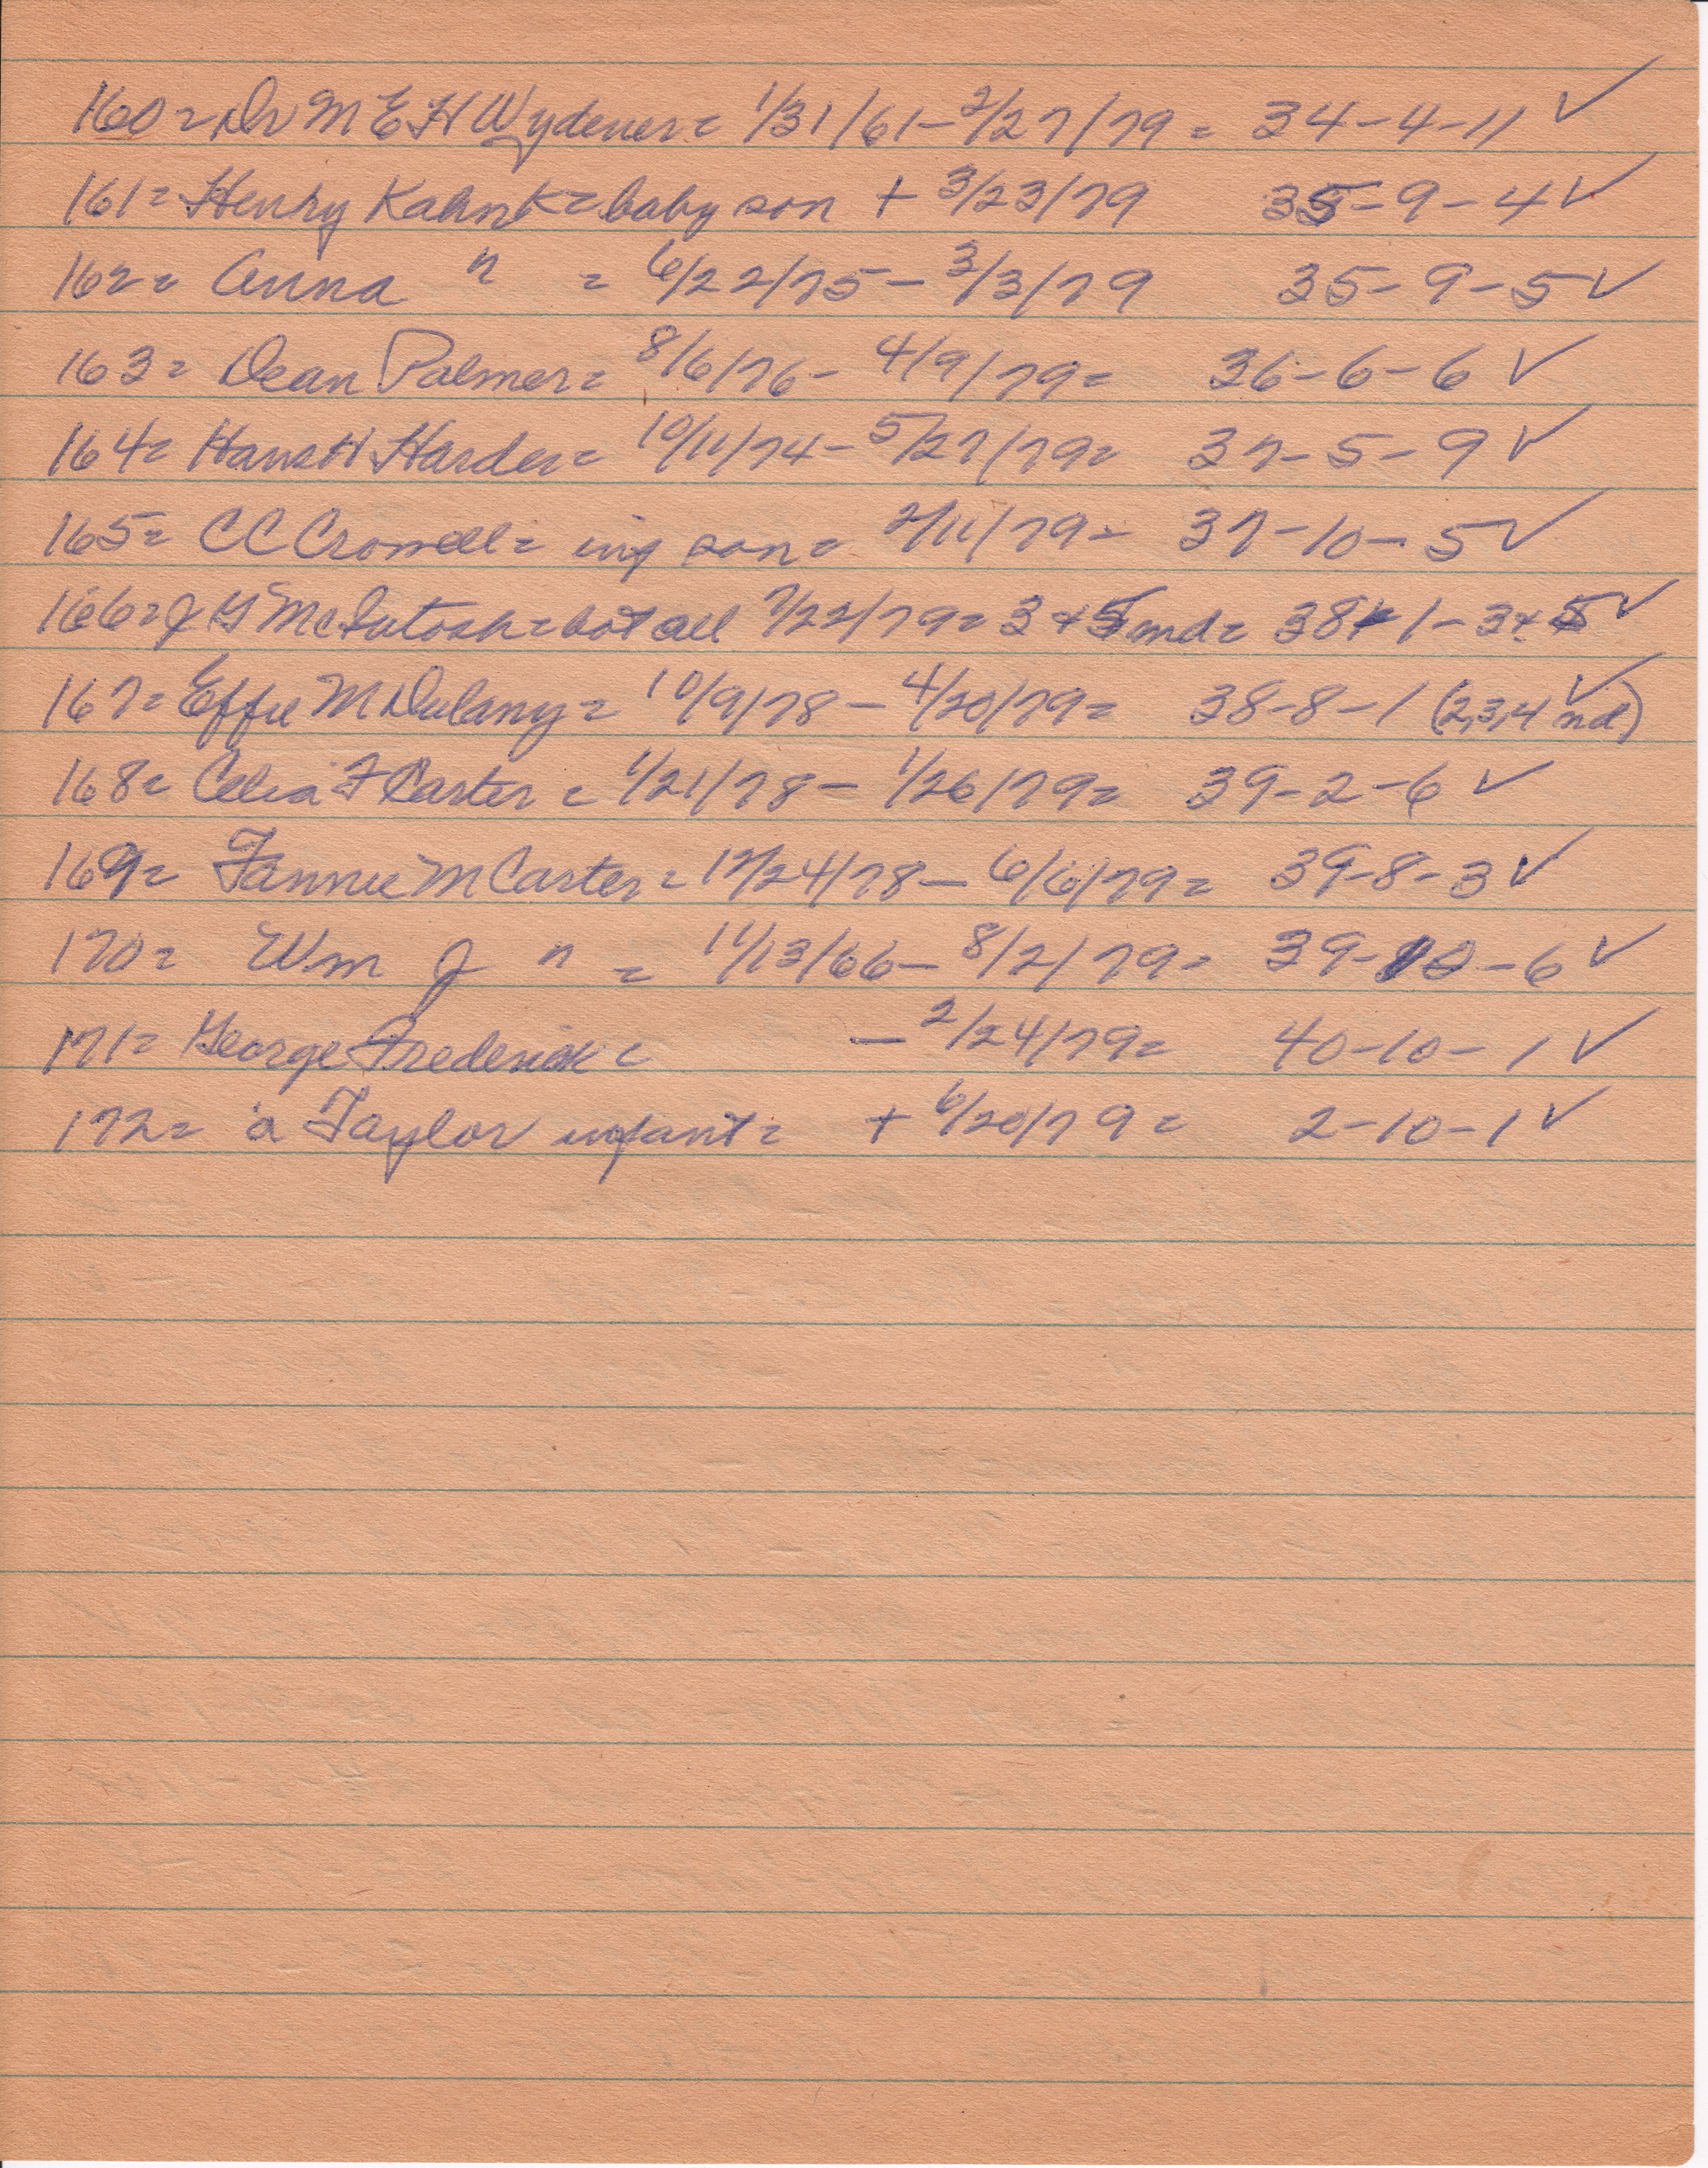 160 = Dr M E H Wydener = 1/31/61 - 2/27/79 = 34-4-11 ✓
161 = Henry Kahnk = baby son + 3/23/79 35-9-4 ✓
162 = Anna " = 6/22/75 - 3/3/79 35-9-5 ✓
163 = Dean Palmer = 8/6/76 - 4/9/79 = 36-6-6 ✓
164 = Hans H Harder = 10/11/74 - 5/27/79 = 37-5-9 ✓
165 = C C Cromell = inf son = 2/11/79 - 37-10-5 ✓
166 = J G McIntosh = bot all 7/22/79 = 3 + 5 md = 38-1-3 + 5 ✓
167 = Effie M Dulany = 10/9/78 - 4/20/79 = 38-8-1 (2,3,4 md) ✓
168 = Celia F Carter = 1/21/78 - 1/26/79 = 39-2-6 ✓
169 = Fannie M Carter = 12/24/78 - 6/6/79 = 39-8-3 ✓
170 = Wm J " = 11/13/66 - 8/2/79 = 39-10-6 ✓
171 = George Frederick = - 2/24/79 = 40-10-1 ✓
172 = a Taylor infant = + 6/20/79 = 2-10-1 ✓